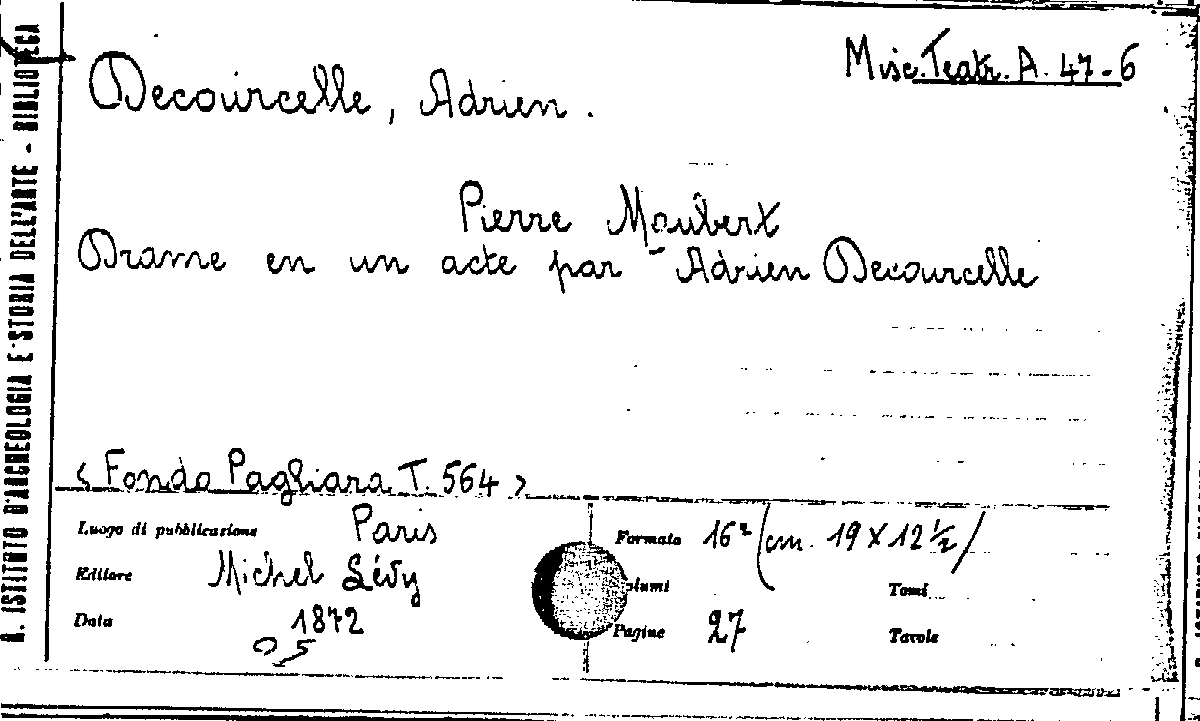 R. ISTITUTO D'ARCHEOLOGIA E STORIA DELL'ARTE - BIBLIOTECA
Decourcelle, Adrien.
Misc. Teatr. A. 47-6
Pierre Maubert
Drame en un acte par Adrien Decourcelle
< Fondo Pagliara T. 564 >
Luogo di pubblicazione Paris
Editore Michel Lévy
Data 1872
Formato 16° (cm. 19 X 12 ½)
Tomi
Pagine 27
Tavole